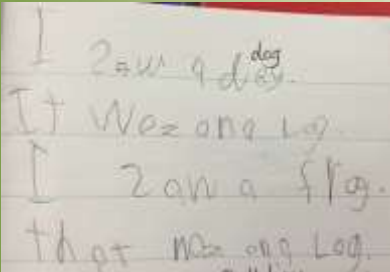 I 2aw a dog. dog
It Woz ona Log.
I 2aw a frog.
that woz ona Log.